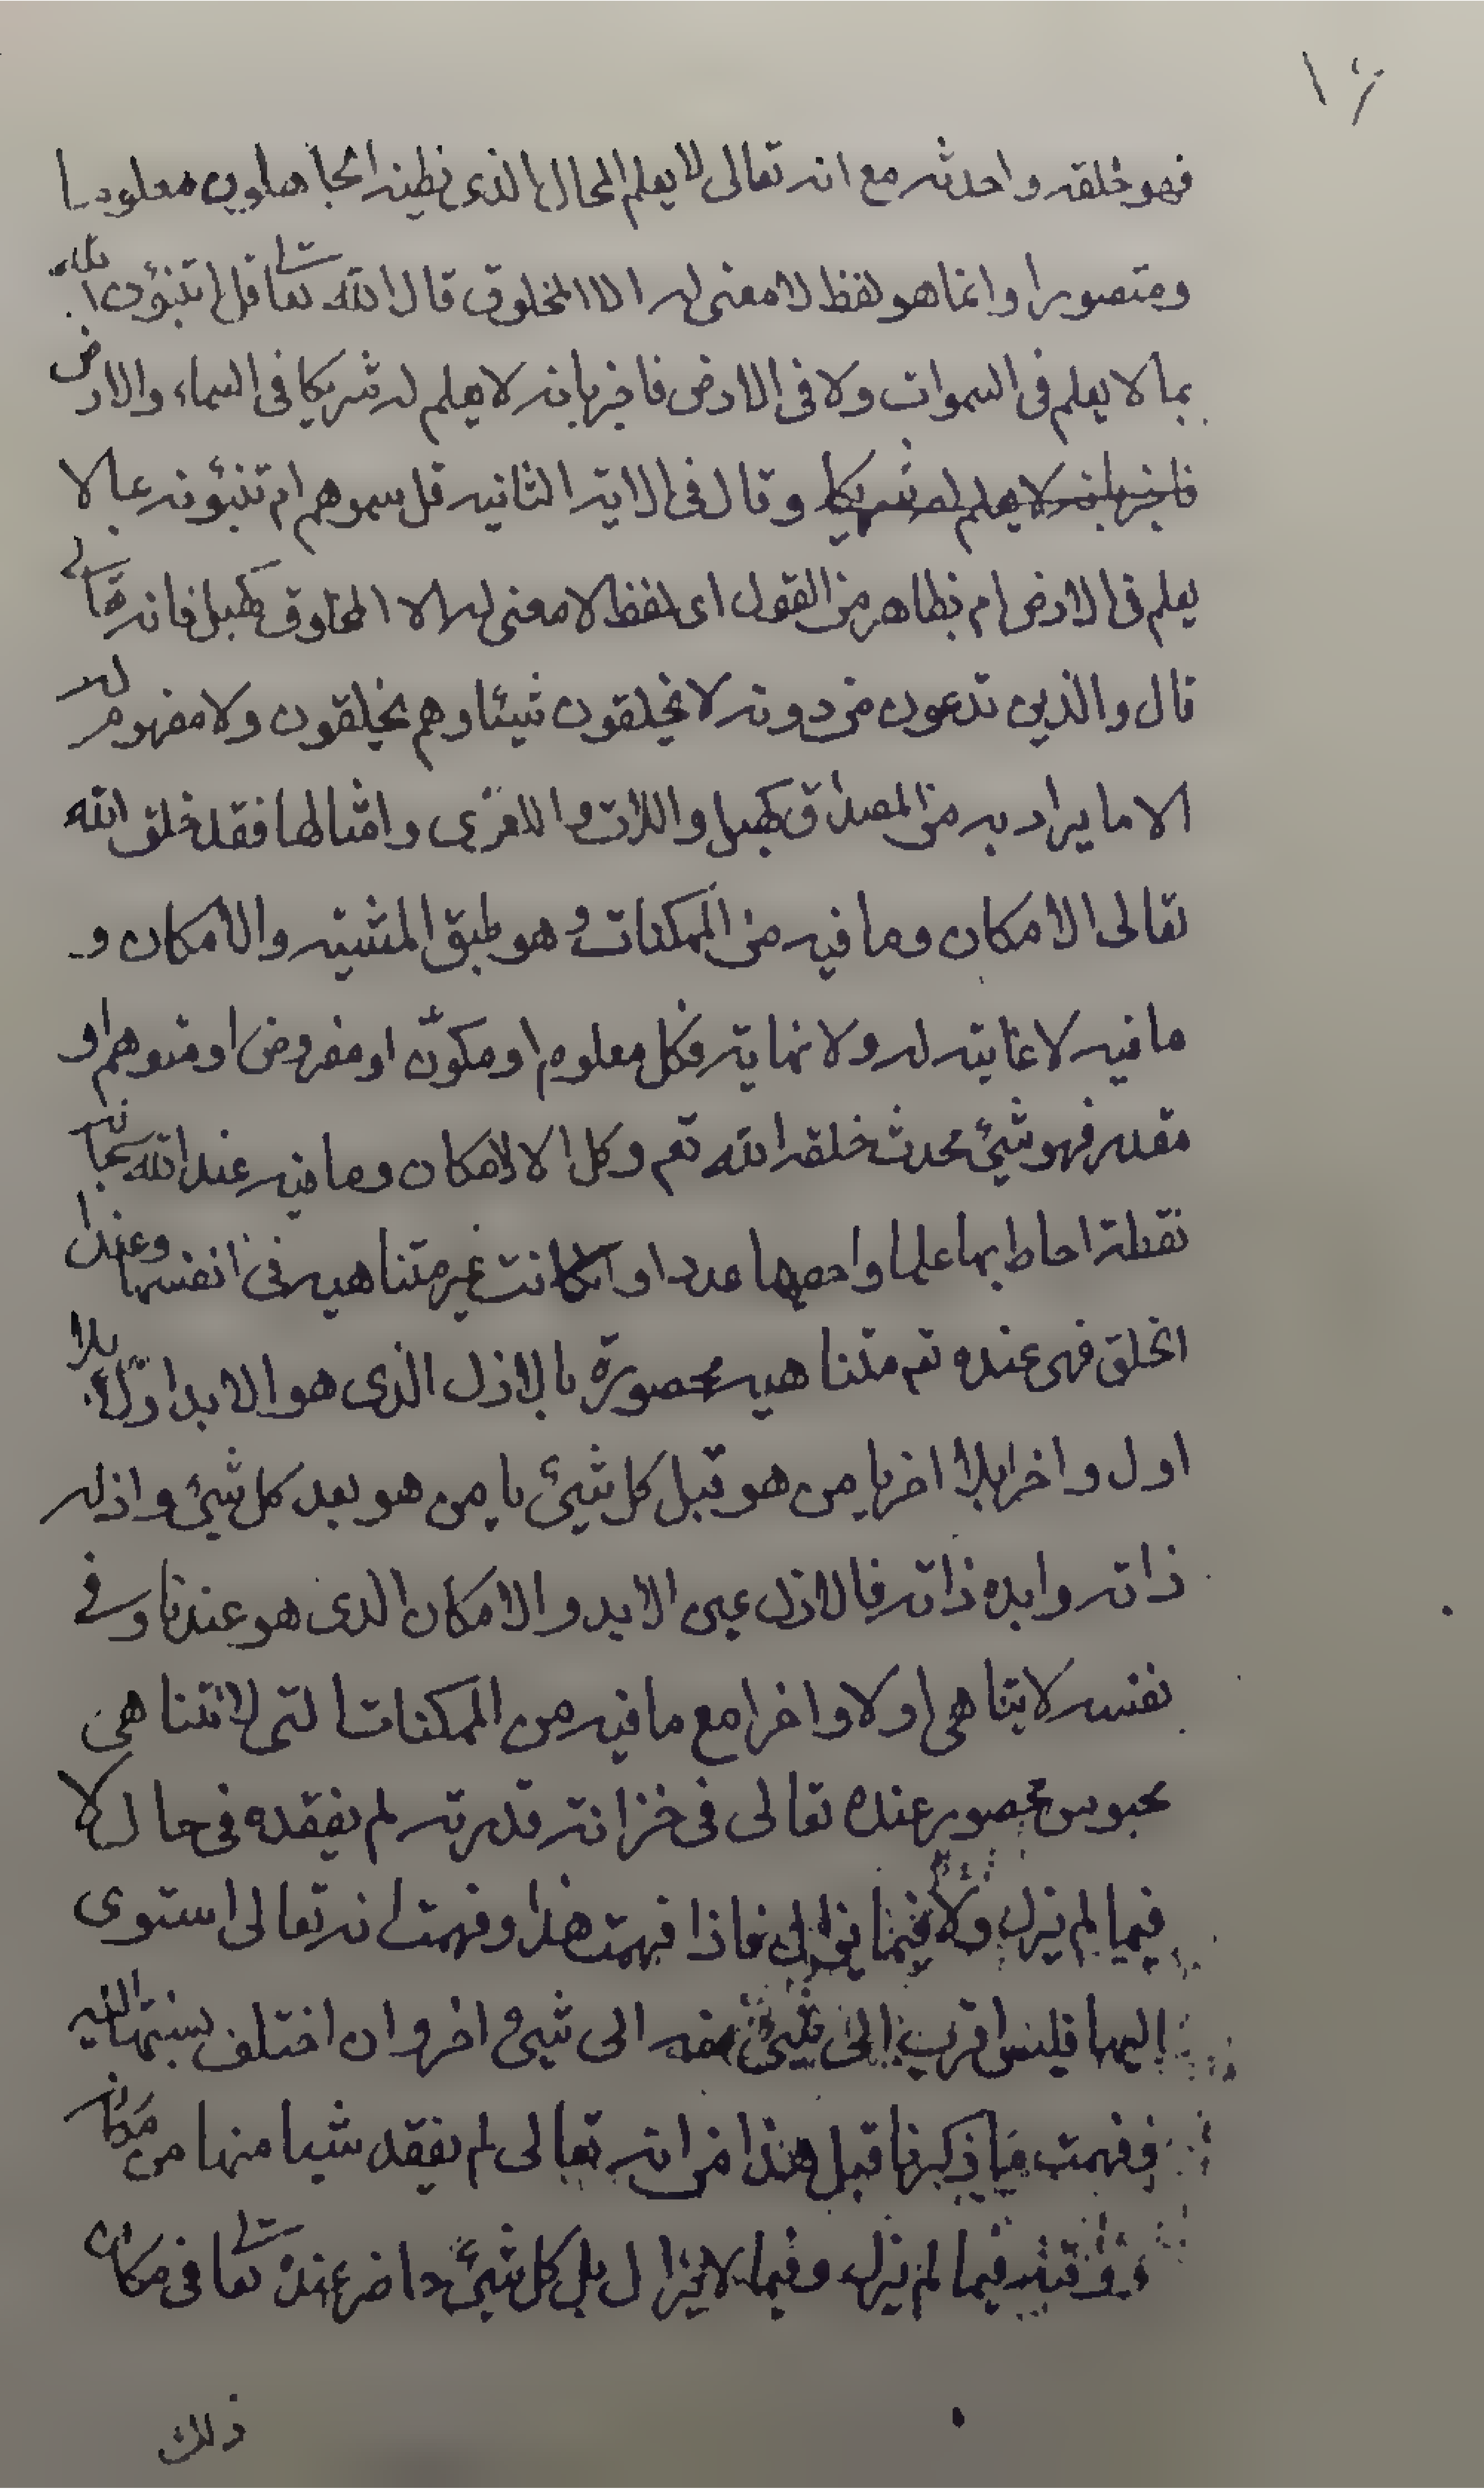 ١٦
فهو خلقه واحدثه مع انه تعالى لا يعلم المحال الذى يظنه الجاهلون معلوما
ومتصورا وانما هو لفظ لا معنى له الا المخلوق قال الله تعالى قل اتنبؤن الله
بما لا يعلم فى السموات ولا فى الارض فاخبر بانه لا يعلم له شريكا فى السماء والارض
فاخبر بانه لا يعلم له شريكا وقال فى الاية الثانيه قل سموهم ام تنبؤنه بما لا
يعلم فى الارض ام بظاهر من القول اى لفظ لا معنى له الا المخلوق كهبل فانه تعالى
قال والذين تدعون من دونه لا يخلقون شيئا وهم يخلقون ولا مفهوم له
الا ما يراد به من المصداق كهبل واللات والعزى وامثالها فقد خلق الله
تعالى الامكان وما فيه من الممكنات وهو طبق المشيته والامكان و
ما فيه لا غاية له ولا نهاية فكل معلوم او مكوّن او مفروض او متوهم او
مقدر فهو شئ محدث خلقه الله تعم وكل الامكان وما فيه عند الله سبحانه
نقطة احاط بها علما واحصها عددا وان كانت غير متناهيه فى انفسها وعند
الخلق فهى عنده تعم متناهيه محصورة بالازل الذى هو الابد اولا بلا
اول واخرا بلا اخر يا من هو قبل كل شئ يا من هو بعد كل شئ وازله
ذاته وابده ذاته فالازل عين الابد والامكان الذى هو عندنا وفى
نفسه لا يتناهى اولا واخرا مع ما فيه من الممكنات التى لا تتناهى
محبوس محصور عنده تعالى فى خزانة قدرته لم يفقده فى حال لا
فيما لم يزل ولا فيما يزال فاذا فهمت هذا وفهمت انه تعالى استوى
اليها فليس اقرب الى شئ منه الى شئ اخر وان اختلف نسبتها اليه
وفهمت ما ذكرنا قبل هذا من انه تعالى لم يفقد شيا منها من مكانه
ووقته فيما لم يزل وفيما لا يزال بل كل شئ حاضر عنده تعالى فى مكان
ذلك